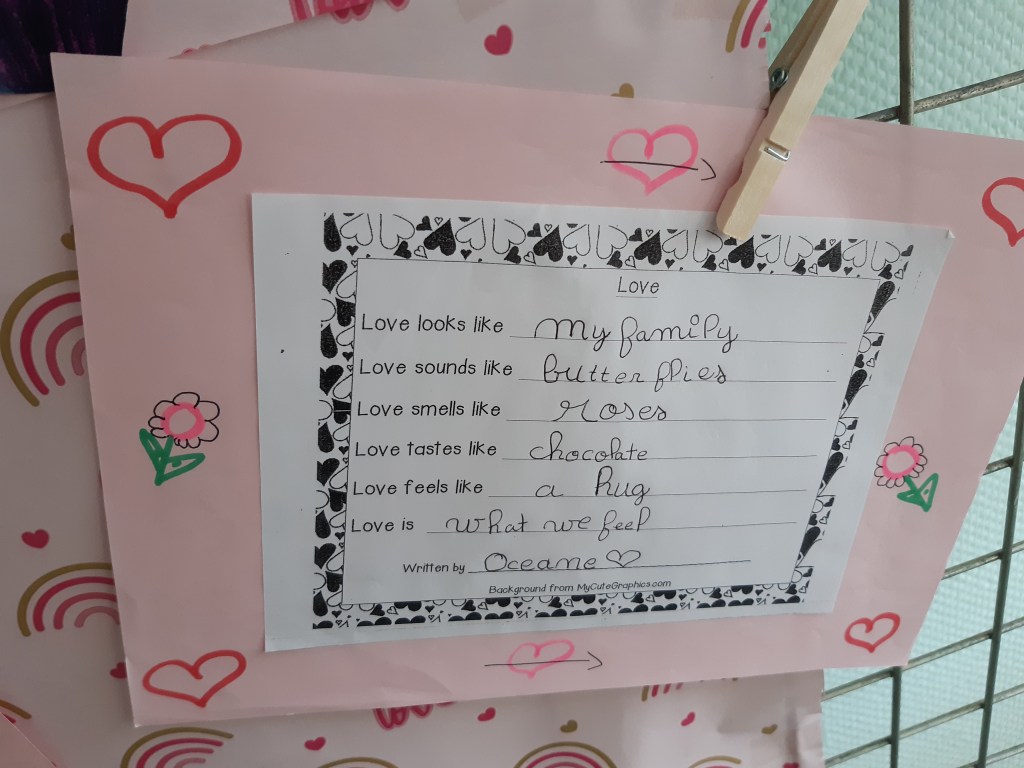 Love
Love looks like my family
Love sounds like butterflies
Love smells like roses
Love tastes like chocolate
Love feels like a hug
Love is what we feel
Written by Oceane ♡
Background from MyCuteGraphics.com